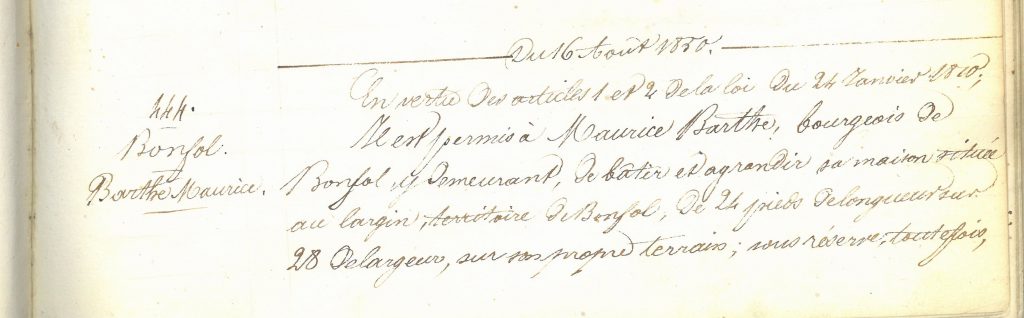 Du 16 Août 1850.
444.
Bonfol.
Barthe Maurice.
En vertu des articles 1 et 2 de la loi du 24 Janvier 1810,
Il est permis à Maurice Barthe, bourgeois de
Bonfol, y demeurant, de bâtir et agrandir sa maison située
au largin, territoire de Bonfol, de 24 pieds de longueur sur
28 de largeur, sur son propre terrain; sous réserve, toutefois,